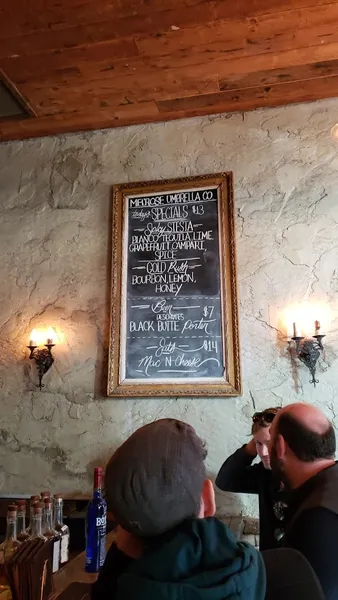 MELROSE UMBRELLA CO.
today's SPECIALS $13
Salty SIESTA
BLANCO TEQUILA, LIME,
GRAPEFRUIT, CAMPARI,
SPICE
GOLD Rush
BOURBON, LEMON,
HONEY
Beer $7
DESCHUTES
BLACK BUTTE Porter
Eats $14
Mac N Cheese